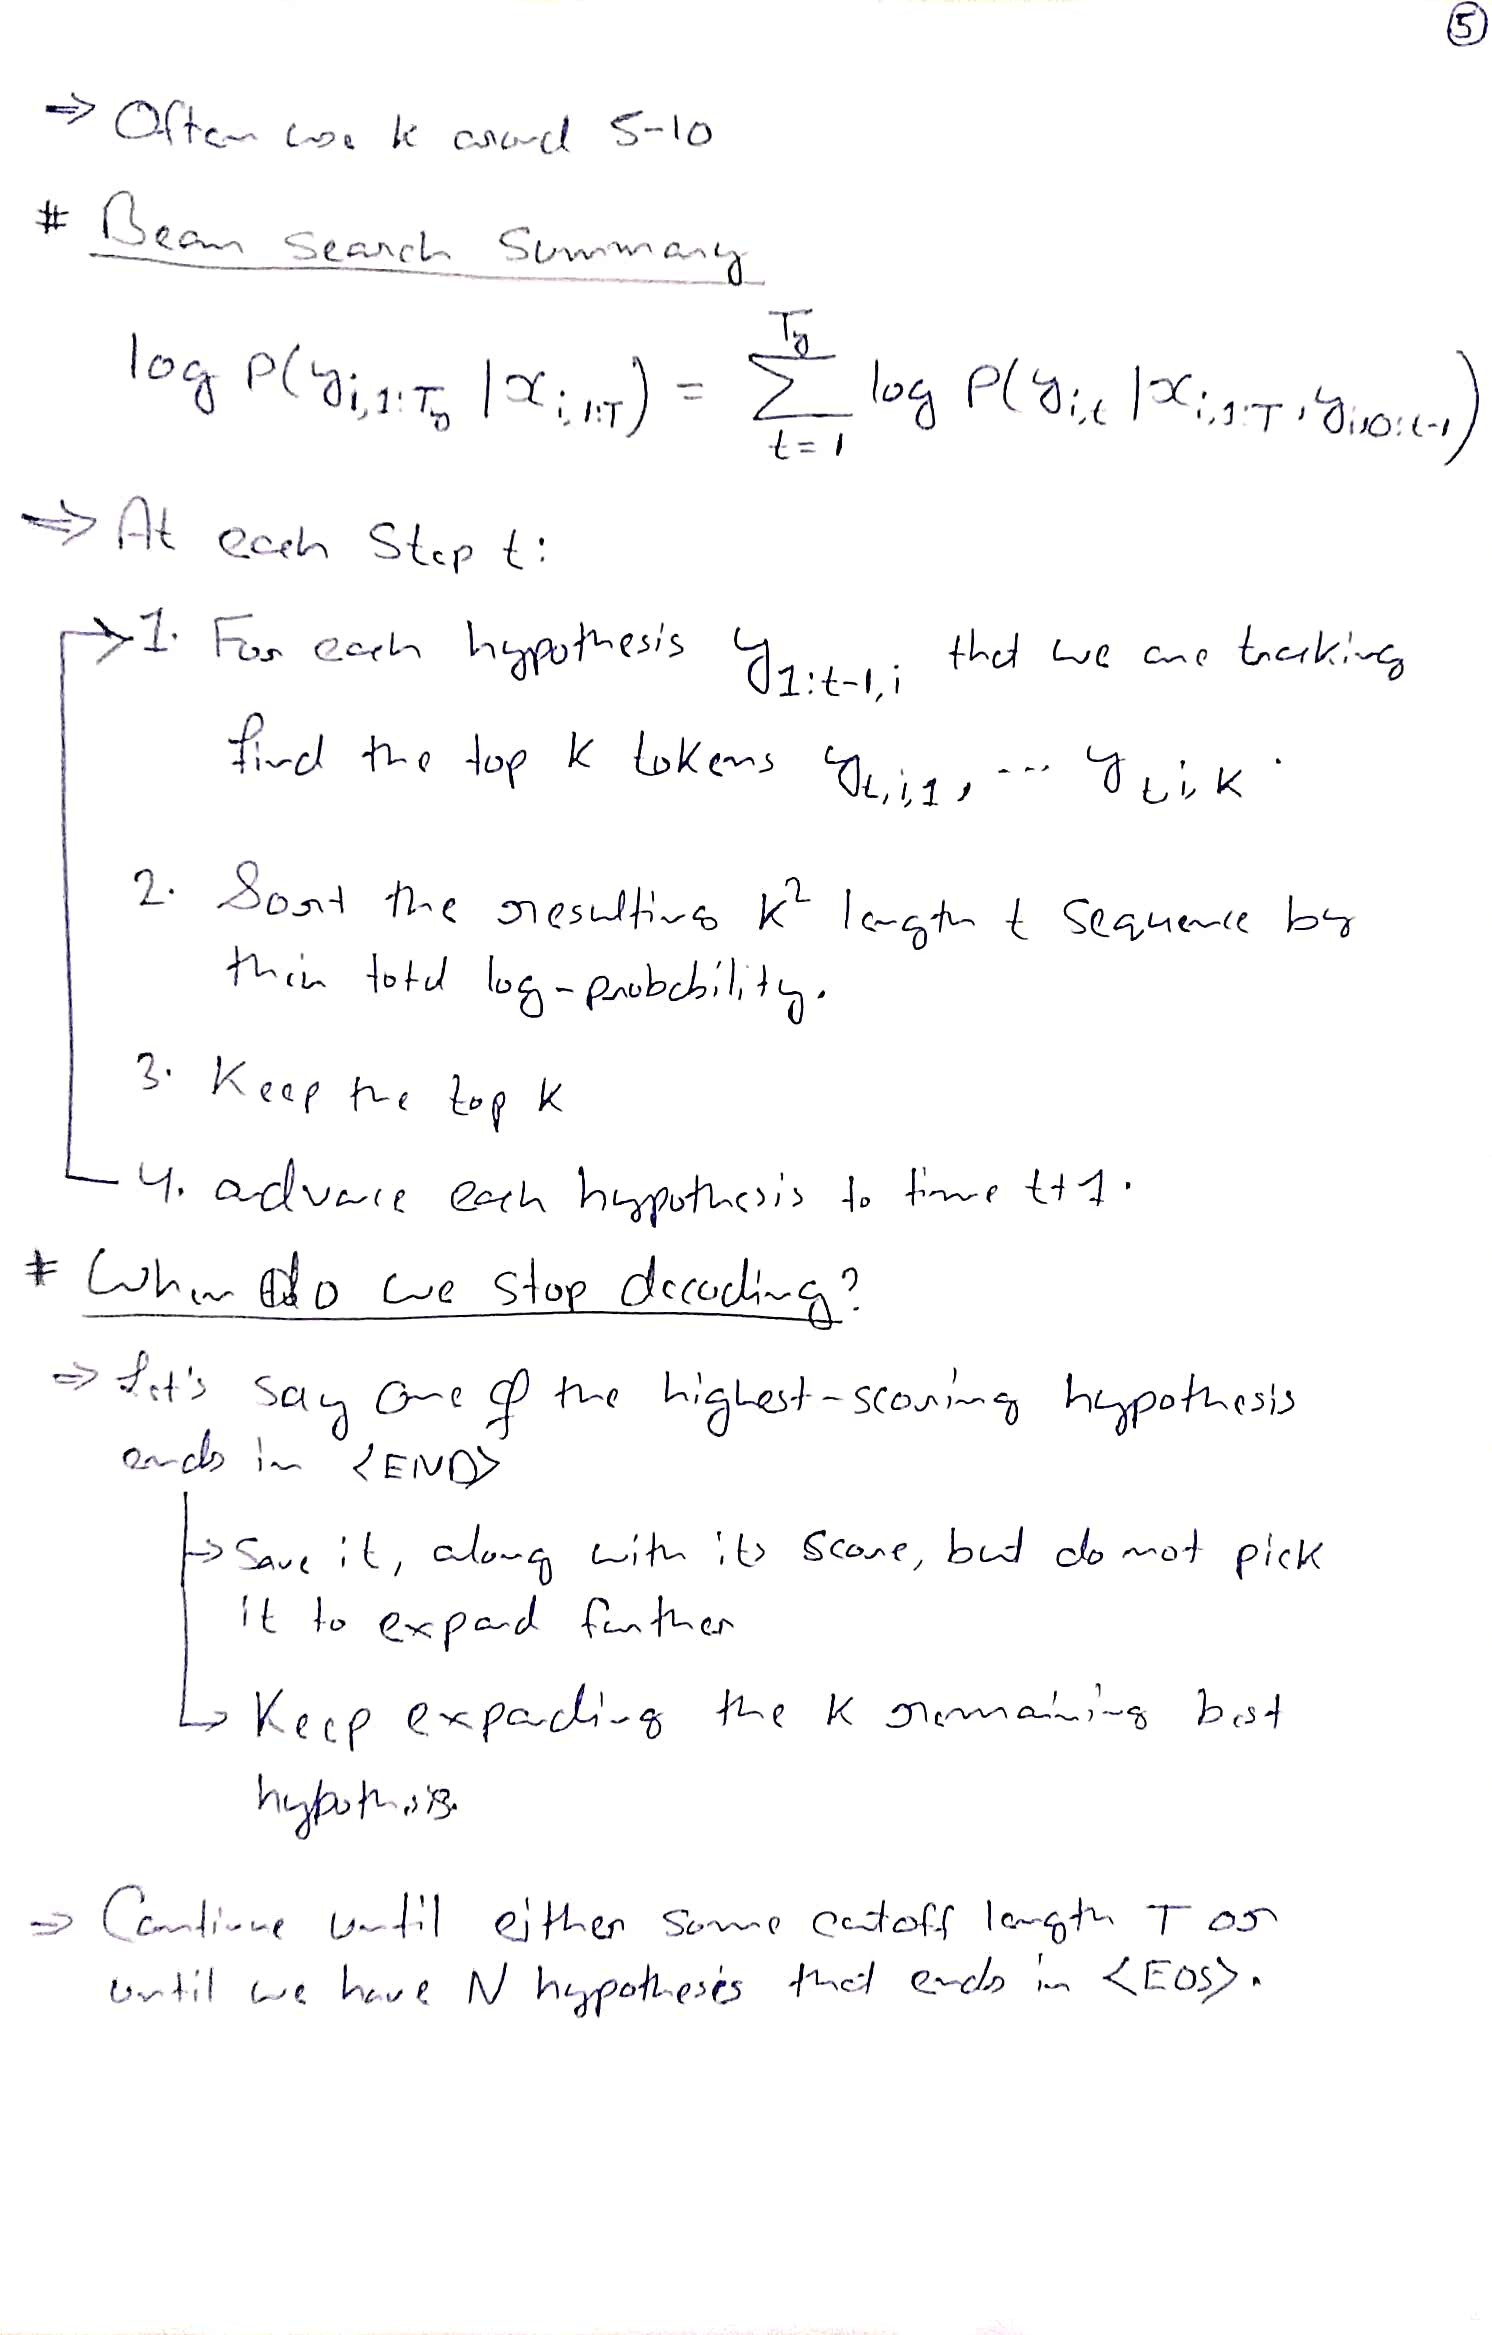 5
⇒ Often use k around 5-10
# Beam search Summary
log P(y_{i,1:T_y} | x_{i,1:T}) = Σ_{t=1}^{T_y} log P(y_{i,t} | x_{i,1:T}, y_{i,0:t-1})
⇒ At each Step t:
1. For each hypothesis y_{1:t-1,i} that we are tracking
find the top k tokens y_{t,i,1}, ... y_{t,i,k}.
2. Sort the resulting k² length t sequence by
their total log-probability.
3. Keep the top k
4. advance each hypothesis to time t+1.
# When do we stop decoding?
⇒ Let's say one of the highest-scoring hypothesis
ends in <END>
→ Save it, along with its score, but do not pick
it to expand further
→ Keep expanding the k remaining best
hypothesis.
⇒ Continue until either some cutoff length T or
until we have N hypothesis that ends in <EOS>.